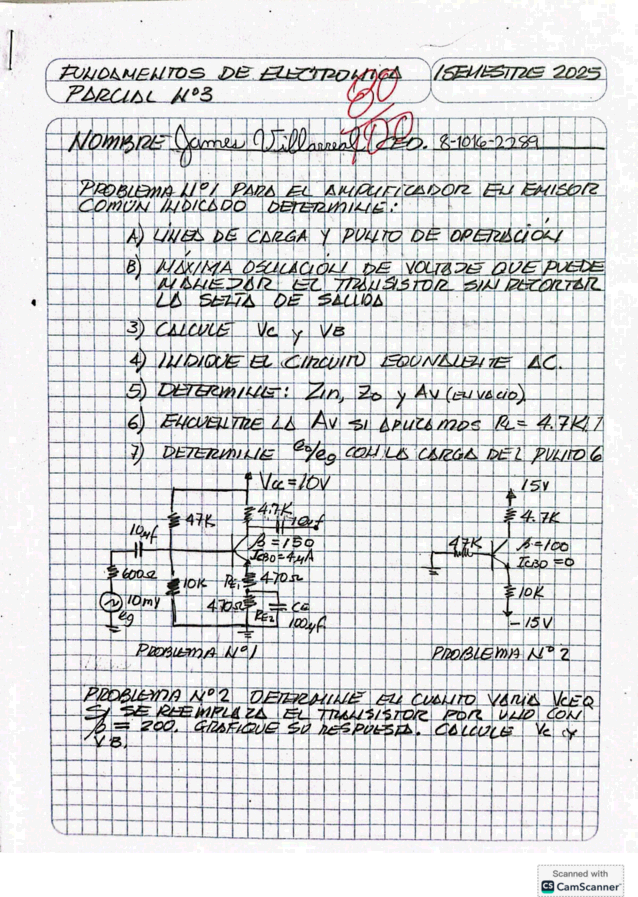 FUNDAMENTOS DE ELECTRONICA
I SEMESTRE 2025
PARCIAL Nº3
NOMBRE James Villarreal CED. 8-1016-2289
PROBLEMA Nº1 PARA EL AMPLIFICADOR EN EMISOR
COMÚN INDICADO DETERMINE:
A) LÍNEA DE CARGA Y PUNTO DE OPERACIÓN
B) MÁXIMA OSILACIÓN DE VOLTAJE QUE PUEDE
MANEJAR EL TRANSISTOR SIN RECORTAR
LA SEÑAL DE SALIDA
3) CALCULE Vc y VB
4) INDIQUE EL CIRCUITO EQUIVALENTE AC.
5) DETERMINE: Zin, Zo y Av (EN VACIO)
6) ENCUENTRE LA Av SI APLICAMOS RL = 4.7K
7) DETERMINE eo/eg CON LA CARGA DEL PUNTO 6
Vcc = 10V
4.7K
10µf
47K
10µf
β = 150
ICBO = 4µA
600Ω
10K
RE1
470Ω
10mV
eg
470Ω
RE2
CE
100µf
PROBLEMA Nº1
15V
4.7K
47K
β = 100
ICBO = 0
10K
-15V
PROBLEMA Nº 2
PROBLEMA Nº2 DETERMINE EN CUANTO VARIA VCEQ
SI SE REEMPLAZA EL TRANSISTOR POR UNO CON
β = 200. GRAFIQUE SU RESPUESTA. CALCULE Vc y
VB.
Scanned with
CS CamScanner